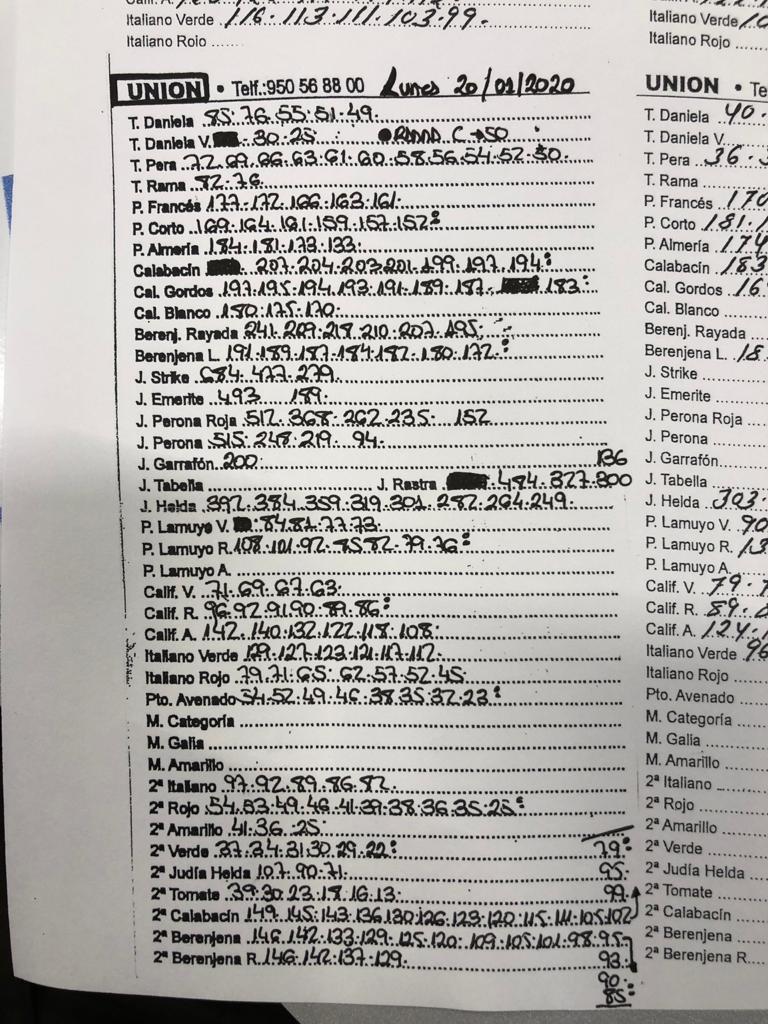 Italiano Verde 116.113.111.103.99.
Italiano Rojo
UNION • Telf.:950 56 88 00 Lunes 20/01/2020
T. Daniela 85.76.55.51.49.
T. Daniela V. 30.25
T. Pera 72.69.66.63.61.60.58.56.54.52.50.
T. Rama 82.76
P. Francés 177.172.166.163.161.
P. Corto 169.164.161.159.157.152:
P. Almería 184.181.173.133.
Calabacín 207.204.203.201.199.197.194:
Cal. Gordos 197.195.194.193.191.189.187. 183:
Cal. Blanco 180.175.170.
Berenj. Rayada 241.209.218.210.207.195.
Berenjena L. 191.189.187.184.182.180.172.:
J. Strike 684.477.279
J. Emerite 493 189.
J. Perona Roja 512.368.262.235. 152
J. Perona 515.248.219. 94.
J. Garrafón 200. 136
J. Tabella J. Rastra 484.327.300
J. Helda 392.384.359.319.301.282.264.249.
P. Lamuyo V. 84.81.77.73.
P. Lamuyo R. 108.101.92.85.82.79.76:
P. Lamuyo A.
Calif. V. 71.69.67.63.
Calif. R. 96.92.91.90.89.86:
Calif. A. 142.140.132.122.118.108.
Italiano Verde 129.127.123.121.117.112.
Italiano Rojo 79.71.65.62.57.52.45.
Pto. Avenado 54.52.49.46.38.35.32.23:
M. Categoría
M. Galia
M. Amarillo
2ª Italiano 97.92.89.86.82.
2ª Rojo 54.53.49.46.41.39.38.36.35.25:
2ª Amarillo 41.36.25.
2ª Verde 37.34.31.30.29.22: 79:
2ª Judía Helda 107.90.71. 95.
2ª Tomate 39.30.23.18.16.13. 99.
2ª Calabacín 149.145.143.136.130.126.123.120.115.111.105.102
2ª Berenjena 146.142.133.129.125.120.109.105.101.98.95.
2ª Berenjena R. 146.142.137.129. 93.
90.
85:
Italiano Verde
Italiano Rojo
UNION • Te
T. Daniela 40.
T. Daniela V.
T. Pera 36.
T. Rama
P. Francés 170
P. Corto 181.
P. Almería 174
Calabacín 183
Cal. Gordos 16
Cal. Blanco
Berenj. Rayada
Berenjena L. 18
J. Strike
J. Emerite
J. Perona Roja
J. Perona
J. Garrafón
J. Tabella
J. Helda 303.
P. Lamuyo V. 90
P. Lamuyo R. 13
P. Lamuyo A.
Calif. V. 79.
Calif. R. 89.
Calif. A. 124.
Italiano Verde 96
Italiano Rojo
Pto. Avenado
M. Categoría
M. Galia
M. Amarillo
2ª Italiano
2ª Rojo
2ª Amarillo
2ª Verde
2ª Judía Helda
2ª Tomate
2ª Calabacín
2ª Berenjena
2ª Berenjena R.